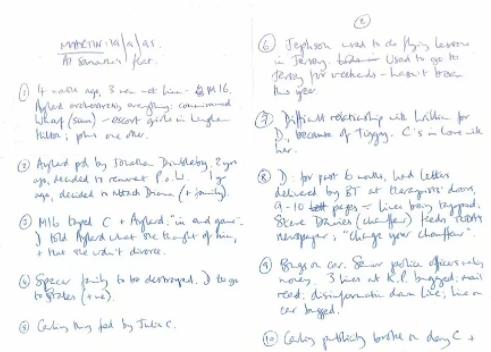 MARTIN: 19/9/95
At Samantha's flat.
① 4 months ago, 3 men met him - MI6.
Aylard orchestrates everything: commissioned
- escort girls in Langham
Hilton; plus one other.
② Aylard ptd by Jonathan Dimbleby, 2 yrs
ago, decided to P.o.W. 1 yr
ago, decided to attack Diana (+ family).
③ MI6 taped C + Aylard: "in end game".
D told Aylard what she thought of him,
+ that she won't divorce.
④ Spencer family to be destroyed. D to go
to States (+ve).
⑤ Carling thing fed by Julia C.
②
⑥ Jephson used to do flying lessons
in Jersey. Used to go to
Jersey for weekends - hasn't been
this year.
⑦ Difficult relationship with William for
D, because of Tiggy. C's in love with
her.
⑧ D. for past 6 months, had letters
delivered by BT at therapists' doors,
9-10 pages = lines being tapped.
Steve Davies (chauffeur) feeds
newspaper; "change your chauffeur".
⑨ Bugs on car. Senior police officers
money. 3 lines at K.P. bugged; mail
read; disinformation down line; line on
car bugged.
⑩ Carling publicity broke on day C +